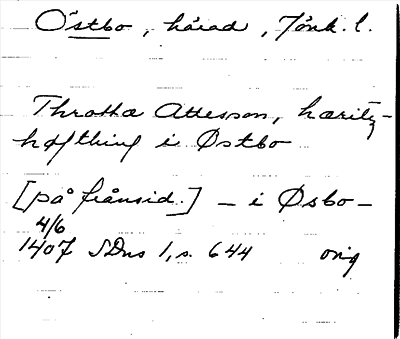 Östbo, härad, Jönk. l.
Throtta Attesson, hæritz-
høfthing i Østbo
[på frånsid.] – i Øsbo –
4/6
1407 SDns 1, s. 644 orig